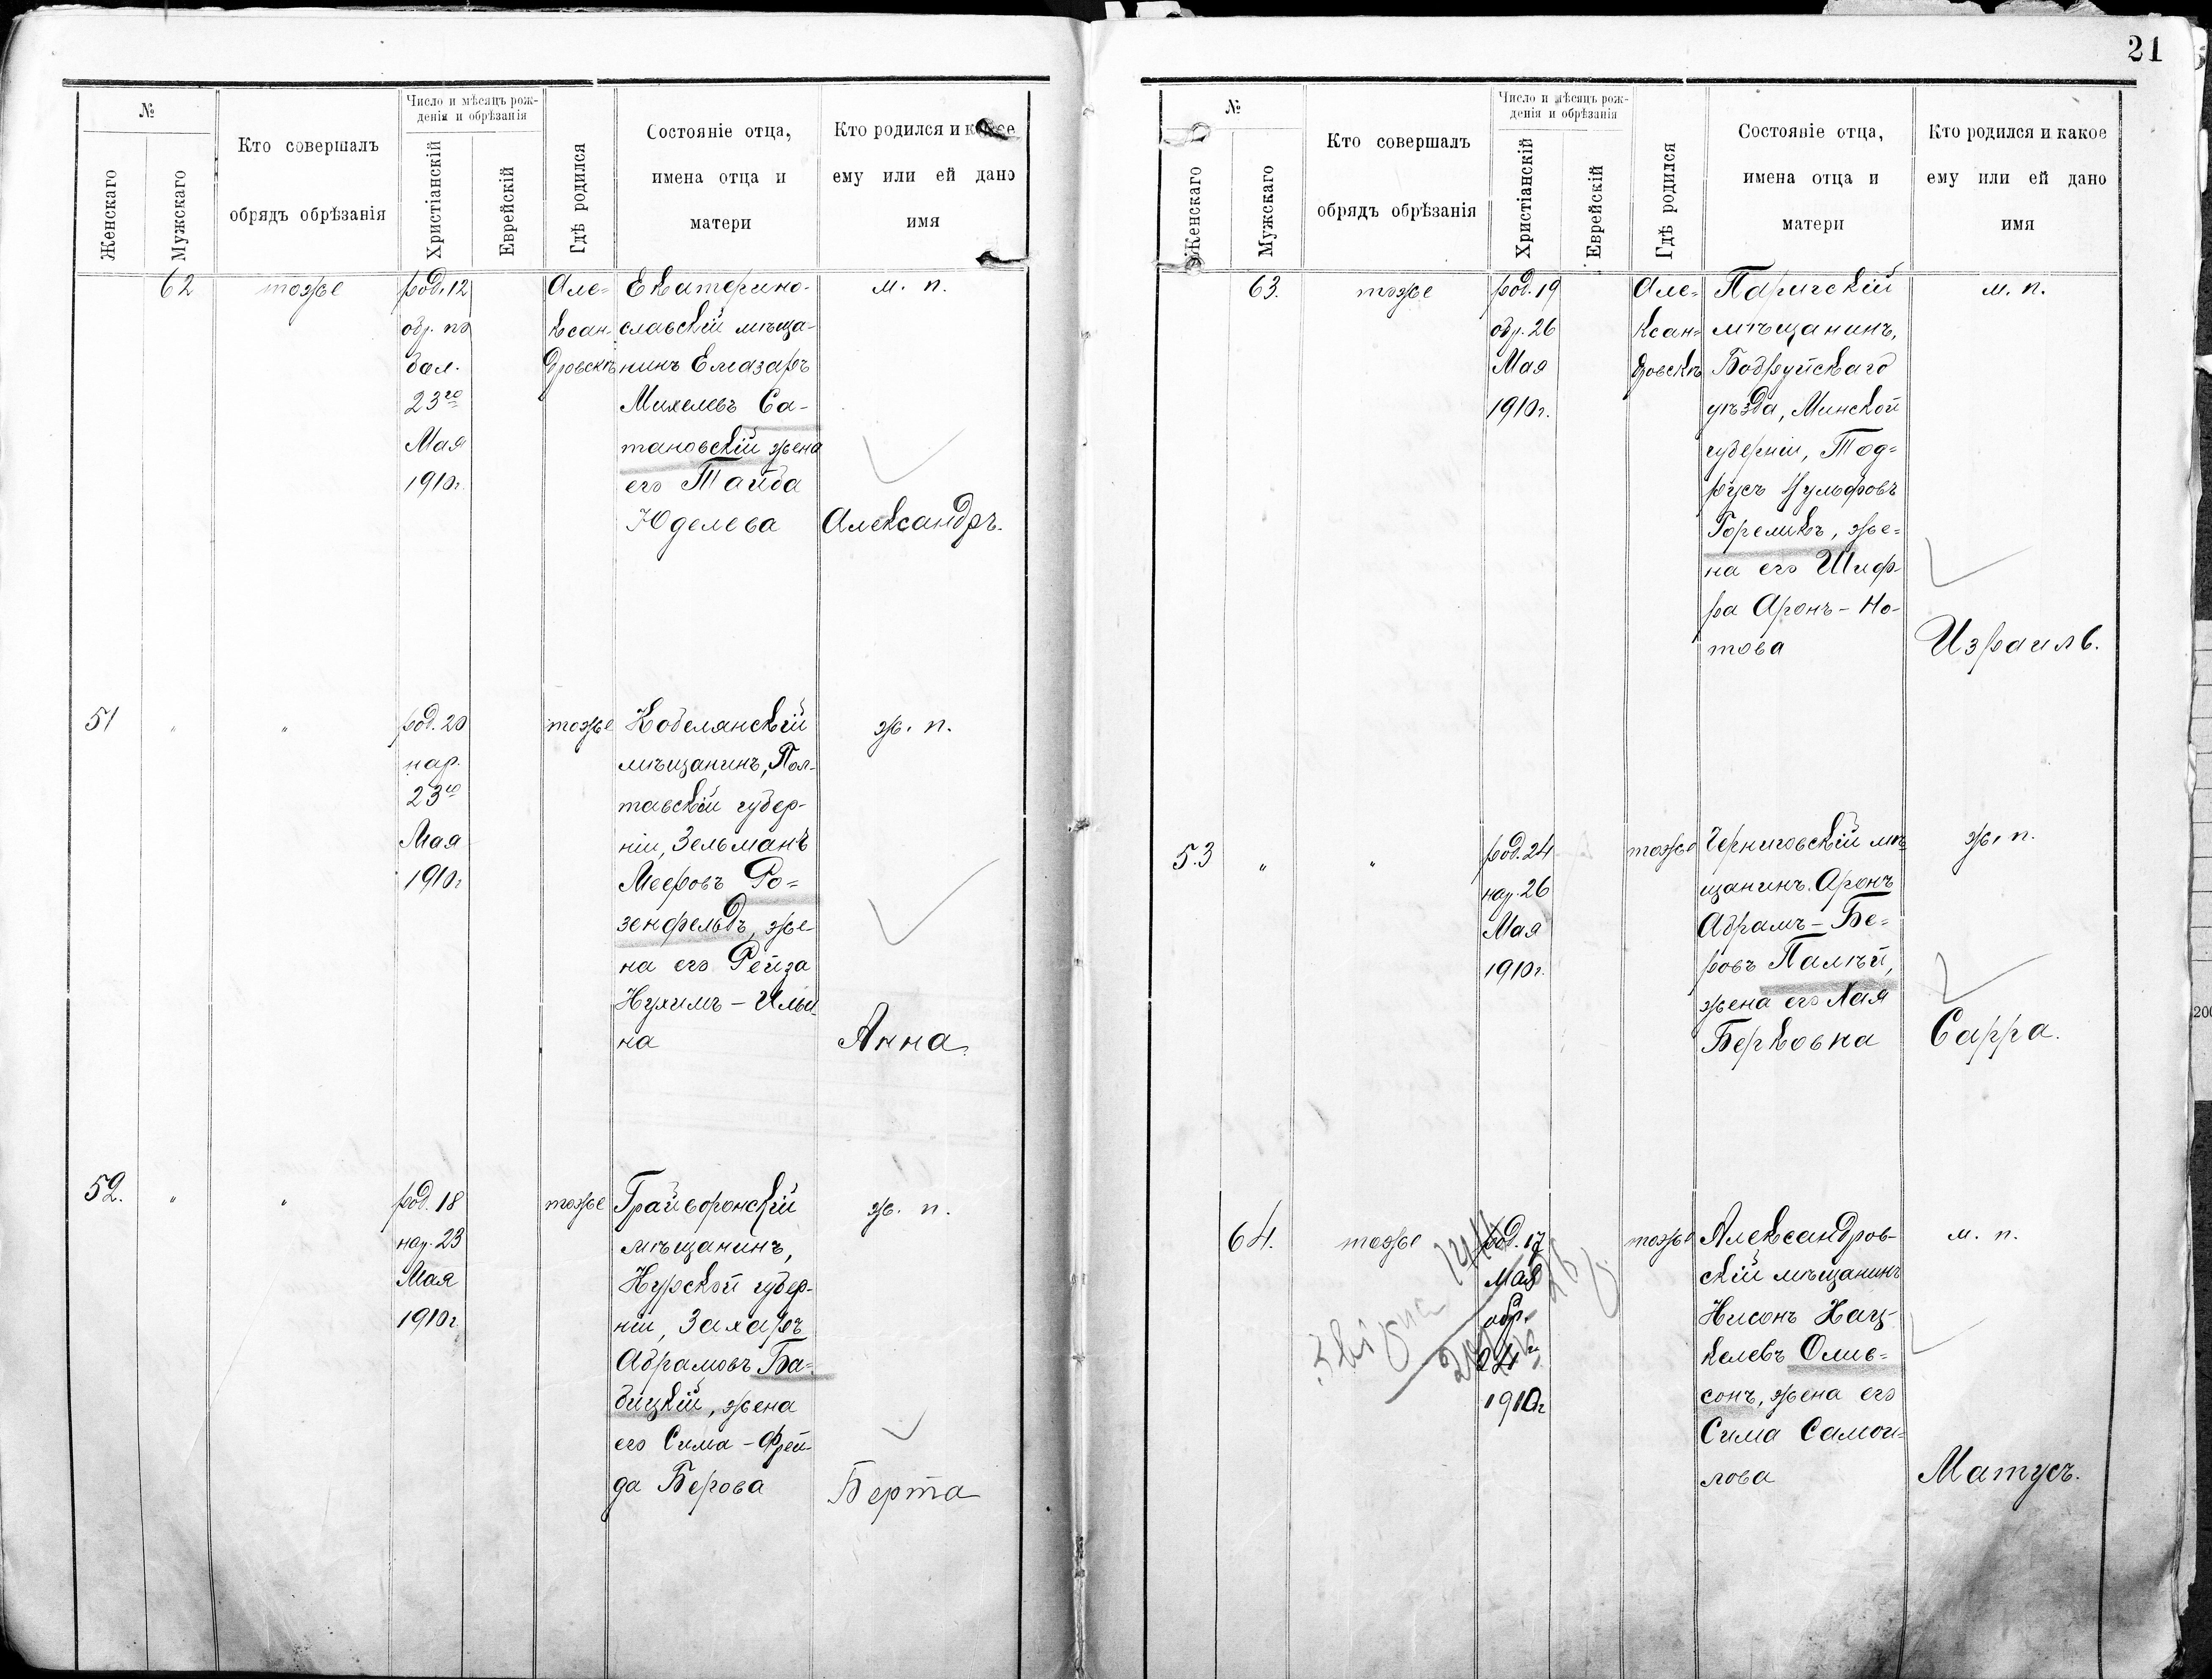 21
№
Женскаго
Мужскаго
Кто совершалъ
обрядъ обрѣзанія
Число и мѣсяцъ рож-
денія и обрѣзанія
Христіанскій
Еврейскій
Гдѣ родился
Состояніе отца,
имена отца и
матери
Кто родился и какое
ему или ей дано
имя
62
тоже
род. 12
обр. по
бол.
23го
Мая
1910г.
Але-
ксан-
дровскѣ
Екатерино-
славскій мѣща-
нинъ Елиазаръ
Михелевъ Са-
тановскій жена
его Тайба
Юделева
м. п.
Александръ.
51
"
"
род. 20
нар.
23го
Мая
1910г
тоже
Кобелянскій
мѣщанинъ, Пол-
тавскій губер-
ніи, Зельманъ
Мееровъ Ро=
зенфельдъ, же-
на его Рейза
Нухимъ-Ильи-
на
ж. п.
Анна.
52.
"
"
род. 18
нар. 23
Мая
1910г
тоже
Грайворонскій
мѣщанинъ,
Курской губер-
ніи, Захаръ
Абрамовъ Ба-
бицкій, жена
его Сима-Фрей-
да Берова
ж. п.
Берта
№
Женскаго
Мужскаго
Кто совершалъ
обрядъ обрѣзанія
Число и мѣсяцъ рож-
денія и обрѣзанія
Христіанскій
Еврейскій
Гдѣ родился
Состояніе отца,
имена отца и
матери
Кто родился и какое
ему или ей дано
имя
63.
тоже
род. 19
обр. 26
Мая
1910г.
Але=
ксан=
дровскѣ
Паричскій
мѣщанинъ,
Бобруйскаго
уѣзда, Минской
губерніи, Тод=
русъ Вульфовъ
Гореликъ, же=
на его Шиф-
ра Аронъ-Но-
това
м. п.
Израиль.
53
"
"
род. 24
нар. 26
Мая
1910г.
тоже
Черниговскій мѣ-
щанинъ Аронъ
Абрамъ-Бе=
ровъ Палѣй,
жена его Хая
Берковна
ж. п.
Сарра.
64.
тоже
род. 17
Мая
обр.
24
1910г
тоже
Александров-
скій мѣщанинъ
Нисонъ Хац-
келевъ Олив=
сонъ, жена его
Сима Самои=
лова
м. п.
Матусъ.